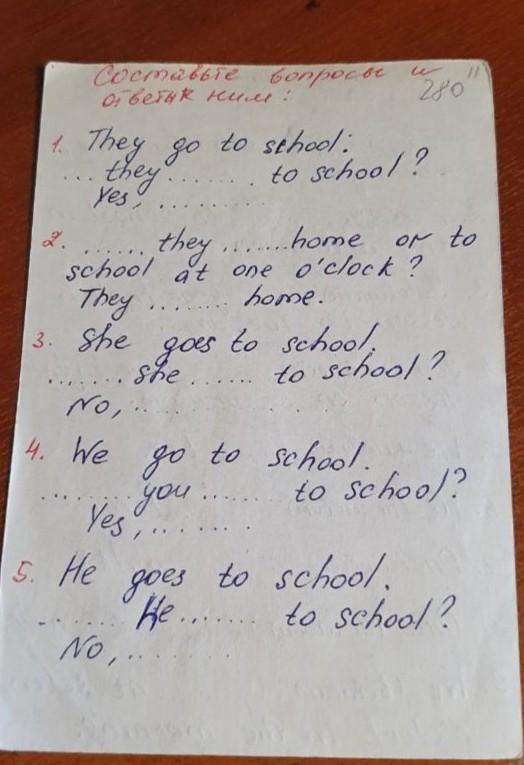 Составьте вопросы и
ответы к ним:
280"
1. They go to school:
... they ....... to school?
Yes, .........
2. ...... they .......home or to
school at one o'clock?
They ........ home.
3. She goes to school.
....... she ...... to school?
No, ...............
4. We go to school.
........ you ....... to school?
Yes, ........
5. He goes to school.
....... He ....... to school?
No, ........